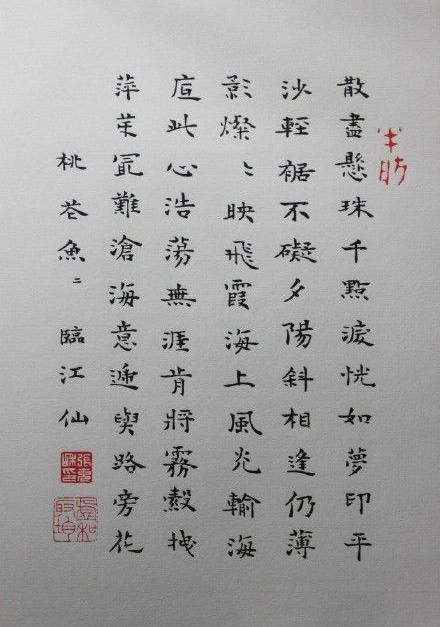 散盡懸珠千點淚恍如夢印平
沙輕裾不礙夕陽斜相逢仍薄
影燦〻映飛霞海上風光輸海
底此心浩蕩無涯肯將霧縠拽
萍芽冣難滄海意遞與路旁花
桃花魚〻臨江仙